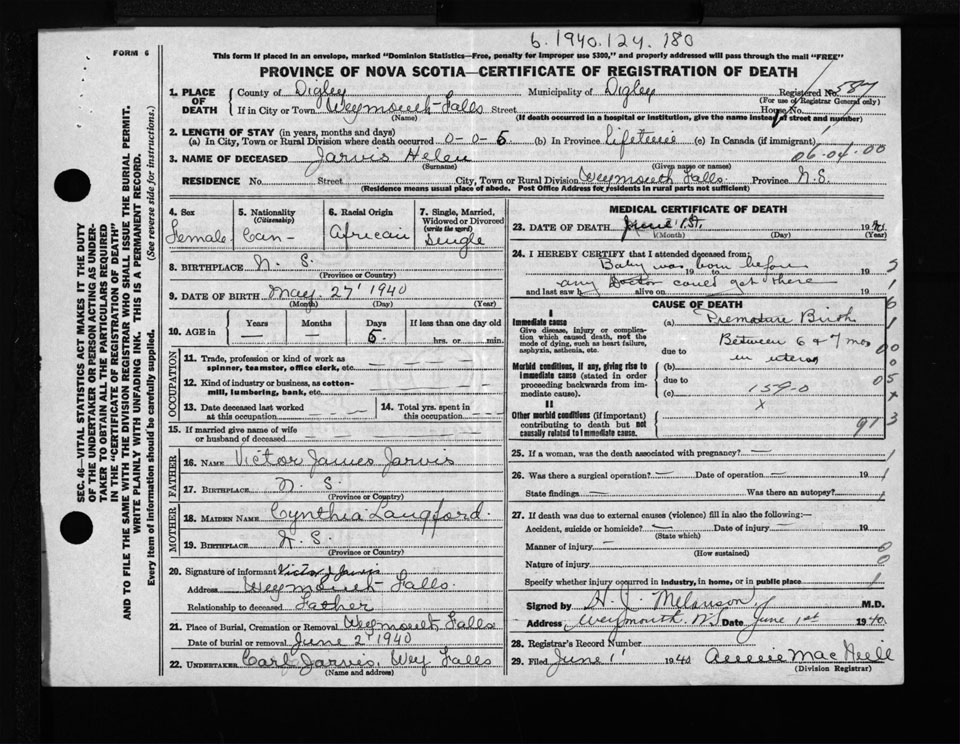 b. 1940.124.180
FORM 6
This form if placed in an envelope, marked "Dominion Statistics—Free, penalty for improper use $300," and properly addressed will pass through the mail "FREE"
PROVINCE OF NOVA SCOTIA—CERTIFICATE OF REGISTRATION OF DEATH
1. PLACE OF DEATH
County of Digby Municipality of Digby Registered No. 587
(For use of Registrar General only)
If in City or Town Weymouth Falls Street House No.
(Name) (If death occurred in a hospital or institution, give the name instead of street and number)
2. LENGTH OF STAY (in years, months and days)
(a) In City, Town or Rural Division where death occurred 0-0-5 (b) In Province Lifetime (c) In Canada (if immigrant)
06-04-00
3. NAME OF DECEASED Jarvis Helen
(Surname) (Given name or names)
RESIDENCE No. Street City, Town or Rural Division Weymouth Falls Province N.S.
(Residence means usual place of abode. Post Office Address for residents in rural parts not sufficient)
4. Sex Female
5. Nationality (Citizenship) Can-
6. Racial Origin African
7. Single, Married, Widowed or Divorced (write the word) Single
8. BIRTHPLACE N. S.
(Province or Country)
9. DATE OF BIRTH May 27 1940
(Month) (Day) (Year)
10. AGE in Years — Months — Days 5. If less than one day old hrs. or min.
OCCUPATION
11. Trade, profession or kind of work as spinner, teamster, office clerk, etc.
12. Kind of industry or business, as cotton-mill, lumbering, bank, etc.
13. Date deceased last worked at this occupation
14. Total yrs. spent in this occupation
15. If married give name of wife or husband of deceased
FATHER
16. NAME Victor James Jarvis
17. BIRTHPLACE N. S.
(Province or Country)
MOTHER
18. MAIDEN NAME Cynthia Langford
19. BIRTHPLACE N. S.
(Province or Country)
20. Signature of informant Victor J Jarvis
Address Weymouth Falls.
Relationship to deceased Father
21. Place of Burial, Cremation or Removal Weymouth Falls
Date of burial or removal June 2 1940
22. UNDERTAKER Carl Jarvis, Wey Falls
(Name and address)
MEDICAL CERTIFICATE OF DEATH
23. DATE OF DEATH June 1st. 1940
(Month) (Day) (Year)
24. I HEREBY CERTIFY that I attended deceased from:
Baby was born before 19 to 19
any Doctor could get there
and last saw h alive on 19
CAUSE OF DEATH
I
Immediate cause
Give disease, injury or complication which caused death, not the mode of dying, such as heart failure, asphyxia, asthenia, etc.
(a) Premature Birth
Between 6 & 7 mos
due to in uterus
Morbid conditions, if any, giving rise to immediate cause (stated in order proceeding backwards from immediate cause).
(b)
due to
(c) 159-0
x
II
Other morbid conditions (if important) contributing to death but not causally related to immediate cause.
25. If a woman, was the death associated with pregnancy? —
26. Was there a surgical operation? — Date of operation — 19
State findings — Was there an autopsy?
27. If death was due to external causes (violence) fill in also the following:—
Accident, suicide or homicide? — Date of injury — 19
(State which)
Manner of injury —
(How sustained)
Nature of injury
Specify whether injury occurred in industry, in home, or in public place
Signed by H. J. Melanson M.D.
Address Weymouth N.S. Date June 1st 1940
28. Registrar's Record Number
29. Filed June 1 1940 Annie MacNeill
(Division Registrar)
SEC. 46—VITAL STATISTICS ACT MAKES IT THE DUTY
OF THE UNDERTAKER OR PERSON ACTING AS UNDER-
TAKER TO OBTAIN ALL THE PARTICULARS REQUIRED
IN THE "CERTIFICATE OF REGISTRATION OF DEATH"
AND TO FILE THE SAME WITH THE DIVISION REGISTRAR WHO SHALL ISSUE THE BURIAL PERMIT.
WRITE PLAINLY WITH UNFADING INK. THIS IS A PERMANENT RECORD.
Every item of information should be carefully supplied. (See reverse side for instructions.)